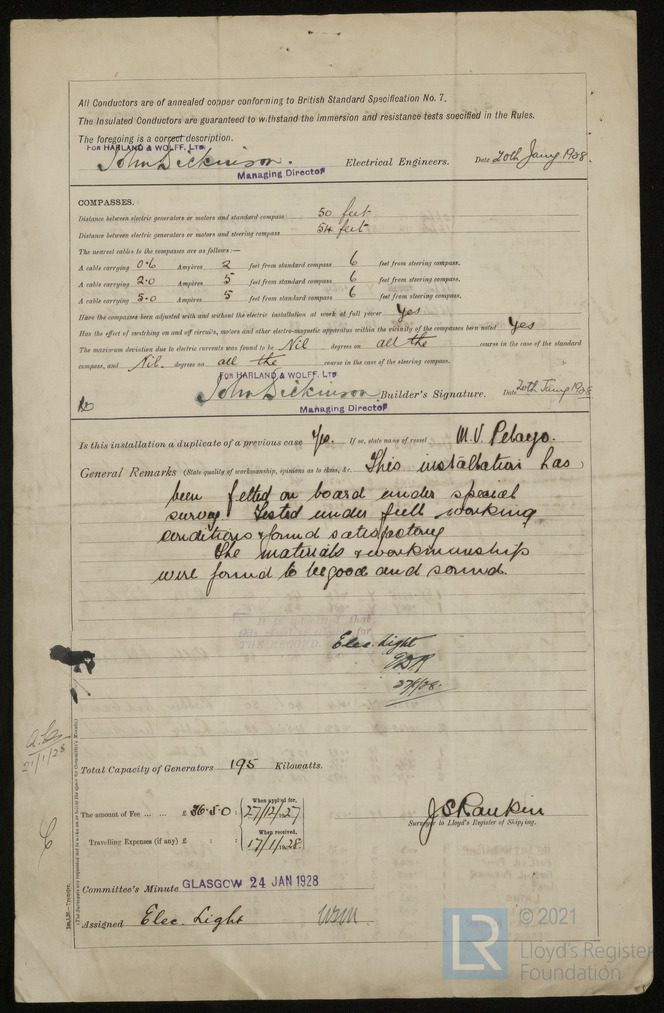 All Conductors are of annealed copper conforming to British Standard Specification No. 7.
The Insulated Conductors are guaranteed to withstand the immersion and resistance tests specified in the Rules.
The foregoing is a correct description.
FOR HARLAND & WOLFF, LTD
John Dickinson. Electrical Engineers. Date 20th Jany 1928.
Managing Director
COMPASSES.
Distance between electric generators or motors and standard compass 50 feet
Distance between electric generators or motors and steering compass 54 feet
The nearest cables to the compasses are as follows:—
A cable carrying 0.6 Ampères 2 feet from standard compass 6 feet from steering compass.
A cable carrying 2.0 Ampères 5 feet from standard compass 6 feet from steering compass.
A cable carrying 5.0 Ampères 5 feet from standard compass 6 feet from steering compass.
Have the compasses been adjusted with and without the electric installation at work at full power Yes
Has the effect of switching on and off circuits, motors and other electro-magnetic apparatus within the vicinity of the compasses been noted Yes
The maximum deviation due to electric currents was found to be Nil degrees on all the course in the case of the standard
compass, and Nil. degrees on all the course in the case of the steering compass.
FOR HARLAND & WOLFF, LTD
John Dickinson Builder's Signature. Date 20th Jany 1928
Managing Director
Is this installation a duplicate of a previous case Yes. If so, state name of vessel M.V. Pelayo.
General Remarks (State quality of workmanship, opinions as to class, &c. This installation has
been fitted on board under special
survey Tested under full working
conditions & found satisfactory
The materials & workmanship
were found to be good and sound.
It is submitted that
THE RECORD
Elec. Light
27/1/28.
21/1/28
Total Capacity of Generators 195 Kilowatts.
The amount of Fee ... ... £ 36.5.0 : When applied for, 27/12/1927
Travelling Expenses (if any) £ : : When received, 17/1/1928.
J S Rankin
Surveyor to Lloyd's Register of Shipping.
Committee's Minute GLASGOW 24 JAN 1928
Assigned Elec. Light
Transfer.
LR © 2021
Lloyd's Register
Foundation